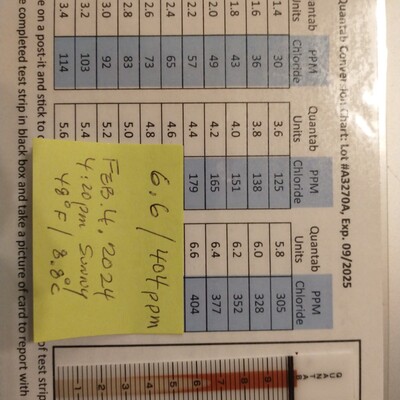 Quantab Conversion Chart: Lot #A3270A, Exp. 09/2025
Quantab Units PPM Chloride Quantab Units PPM Chloride Quantab Units PPM Chloride
1.4 30 3.6 125 5.8 305
1.6 36 3.8 138 6.0 328
1.8 43 4.0 151 6.2 352
2.0 49 4.2 165 6.4 377
2.2 57 4.4 179 6.6 404
2.4 65 4.6
2.6 73 4.8
2.8 83 5.0
3.0 92 5.2
3.2 103 5.4
3.4 114 5.6
6.6 / 404 ppm
FEB. 4, 2024
4:20pm Sunny
48°F / 8.8°C
QUANTAB
1 2 3 4 5 6 7 8 9
e on a post-it and stick to of test strip
e completed test strip in black box and take a picture of card to report with